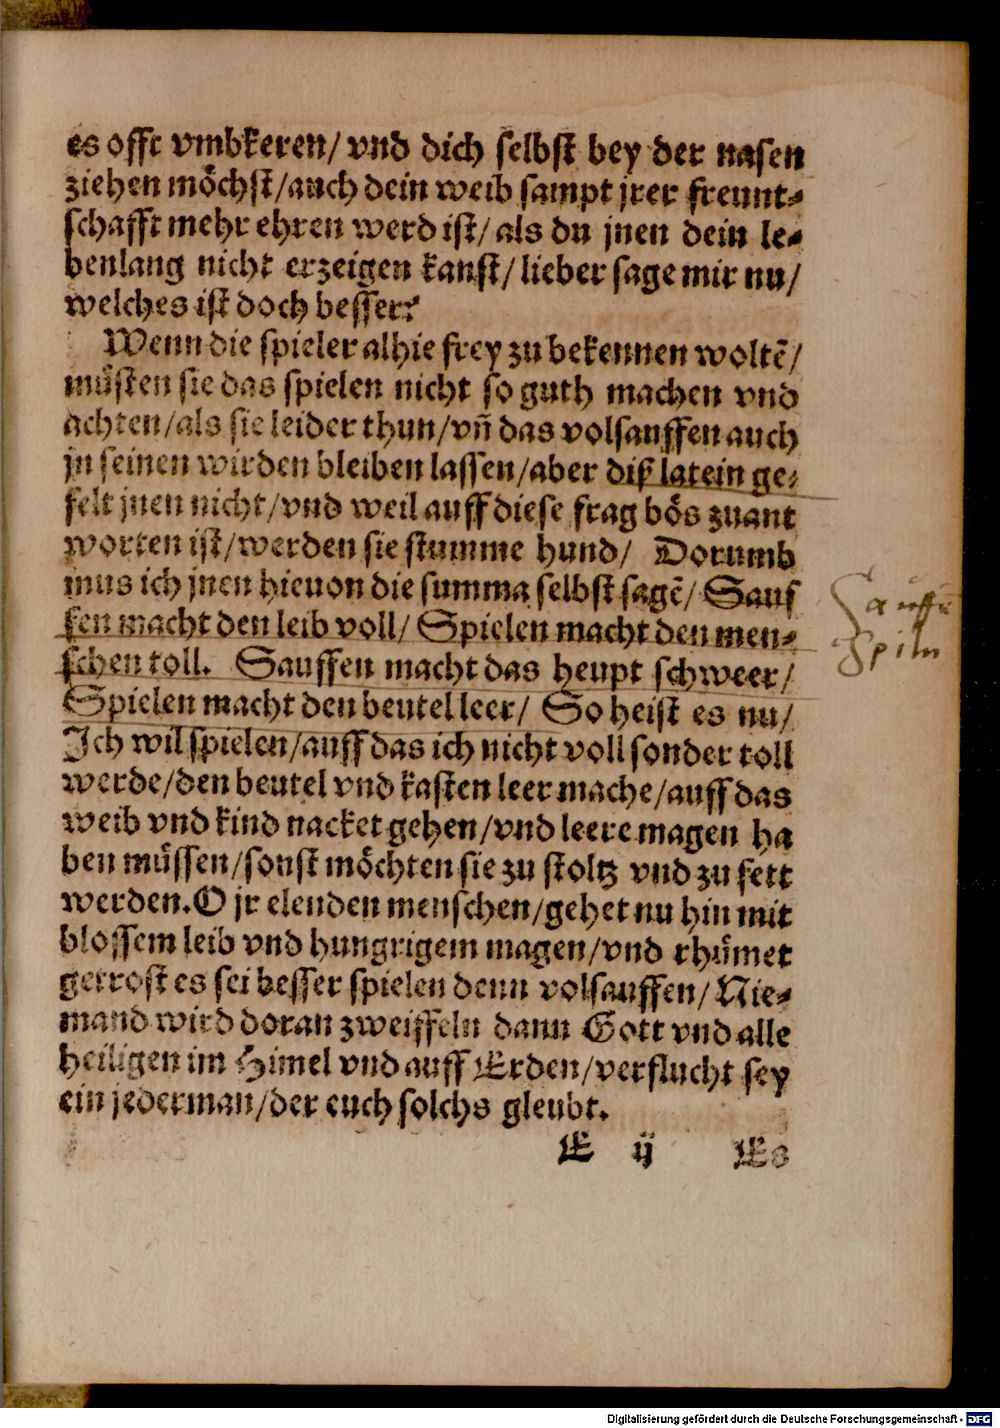 es offt vmbkeren/ vnd dich selbst bey der nasen
ziehen moͤchst/auch dein weib sampt jrer freunt⸗
schafft mehr ehren werd ist/ als du jnen dein le⸗
benlang nicht erzeigen kanst/ lieber sage mir nu/
welches ist doch besser?
Wenn die spieler alhie frey zu bekennen woltē/
muͤsten sie das spielen nicht so guth machen vnd
achten/als sie leider thun/vñ das volsauffen auch
jn seinen wirden bleiben lassen/aber diß latein ge⸗
felt jnen nicht/vnd weil auff diese frag boͤs zuant
worten ist/werden sie stumme hund/ Dorumb
mus ich jnen hieuon die summa selbst sagē/ Sauf
fen macht den leib voll/ Spielen macht den men⸗
schen toll. Sauffen macht das heupt schweer/
Spielen macht den beutel leer/ So heist es nu/
Ich wil spielen/auff das ich nicht voll sonder toll
werde/den beutel vnd kasten leer mache/auff das
weib vnd kind nacket gehen/vnd leere magen ha
ben muͤssen/sonst moͤchten sie zu stoltz vnd zu fett
werden.O jr elenden menschen/gehet nu hin mit
blossem leib vnd hungrigem magen/vnd rhuͤmet
getrost es sei besser spielen denn volsauffen/ Nie⸗
mand wird doran zweiffeln dann Gott vnd alle
heiligen im Himel vnd auff Erden/verflucht sey
ein jederman/der euch solchs gleubt.
E ij Es
Sauffen
Spiln
Digitalisierung gefördert durch die Deutsche Forschungsgemeinschaft - DFG